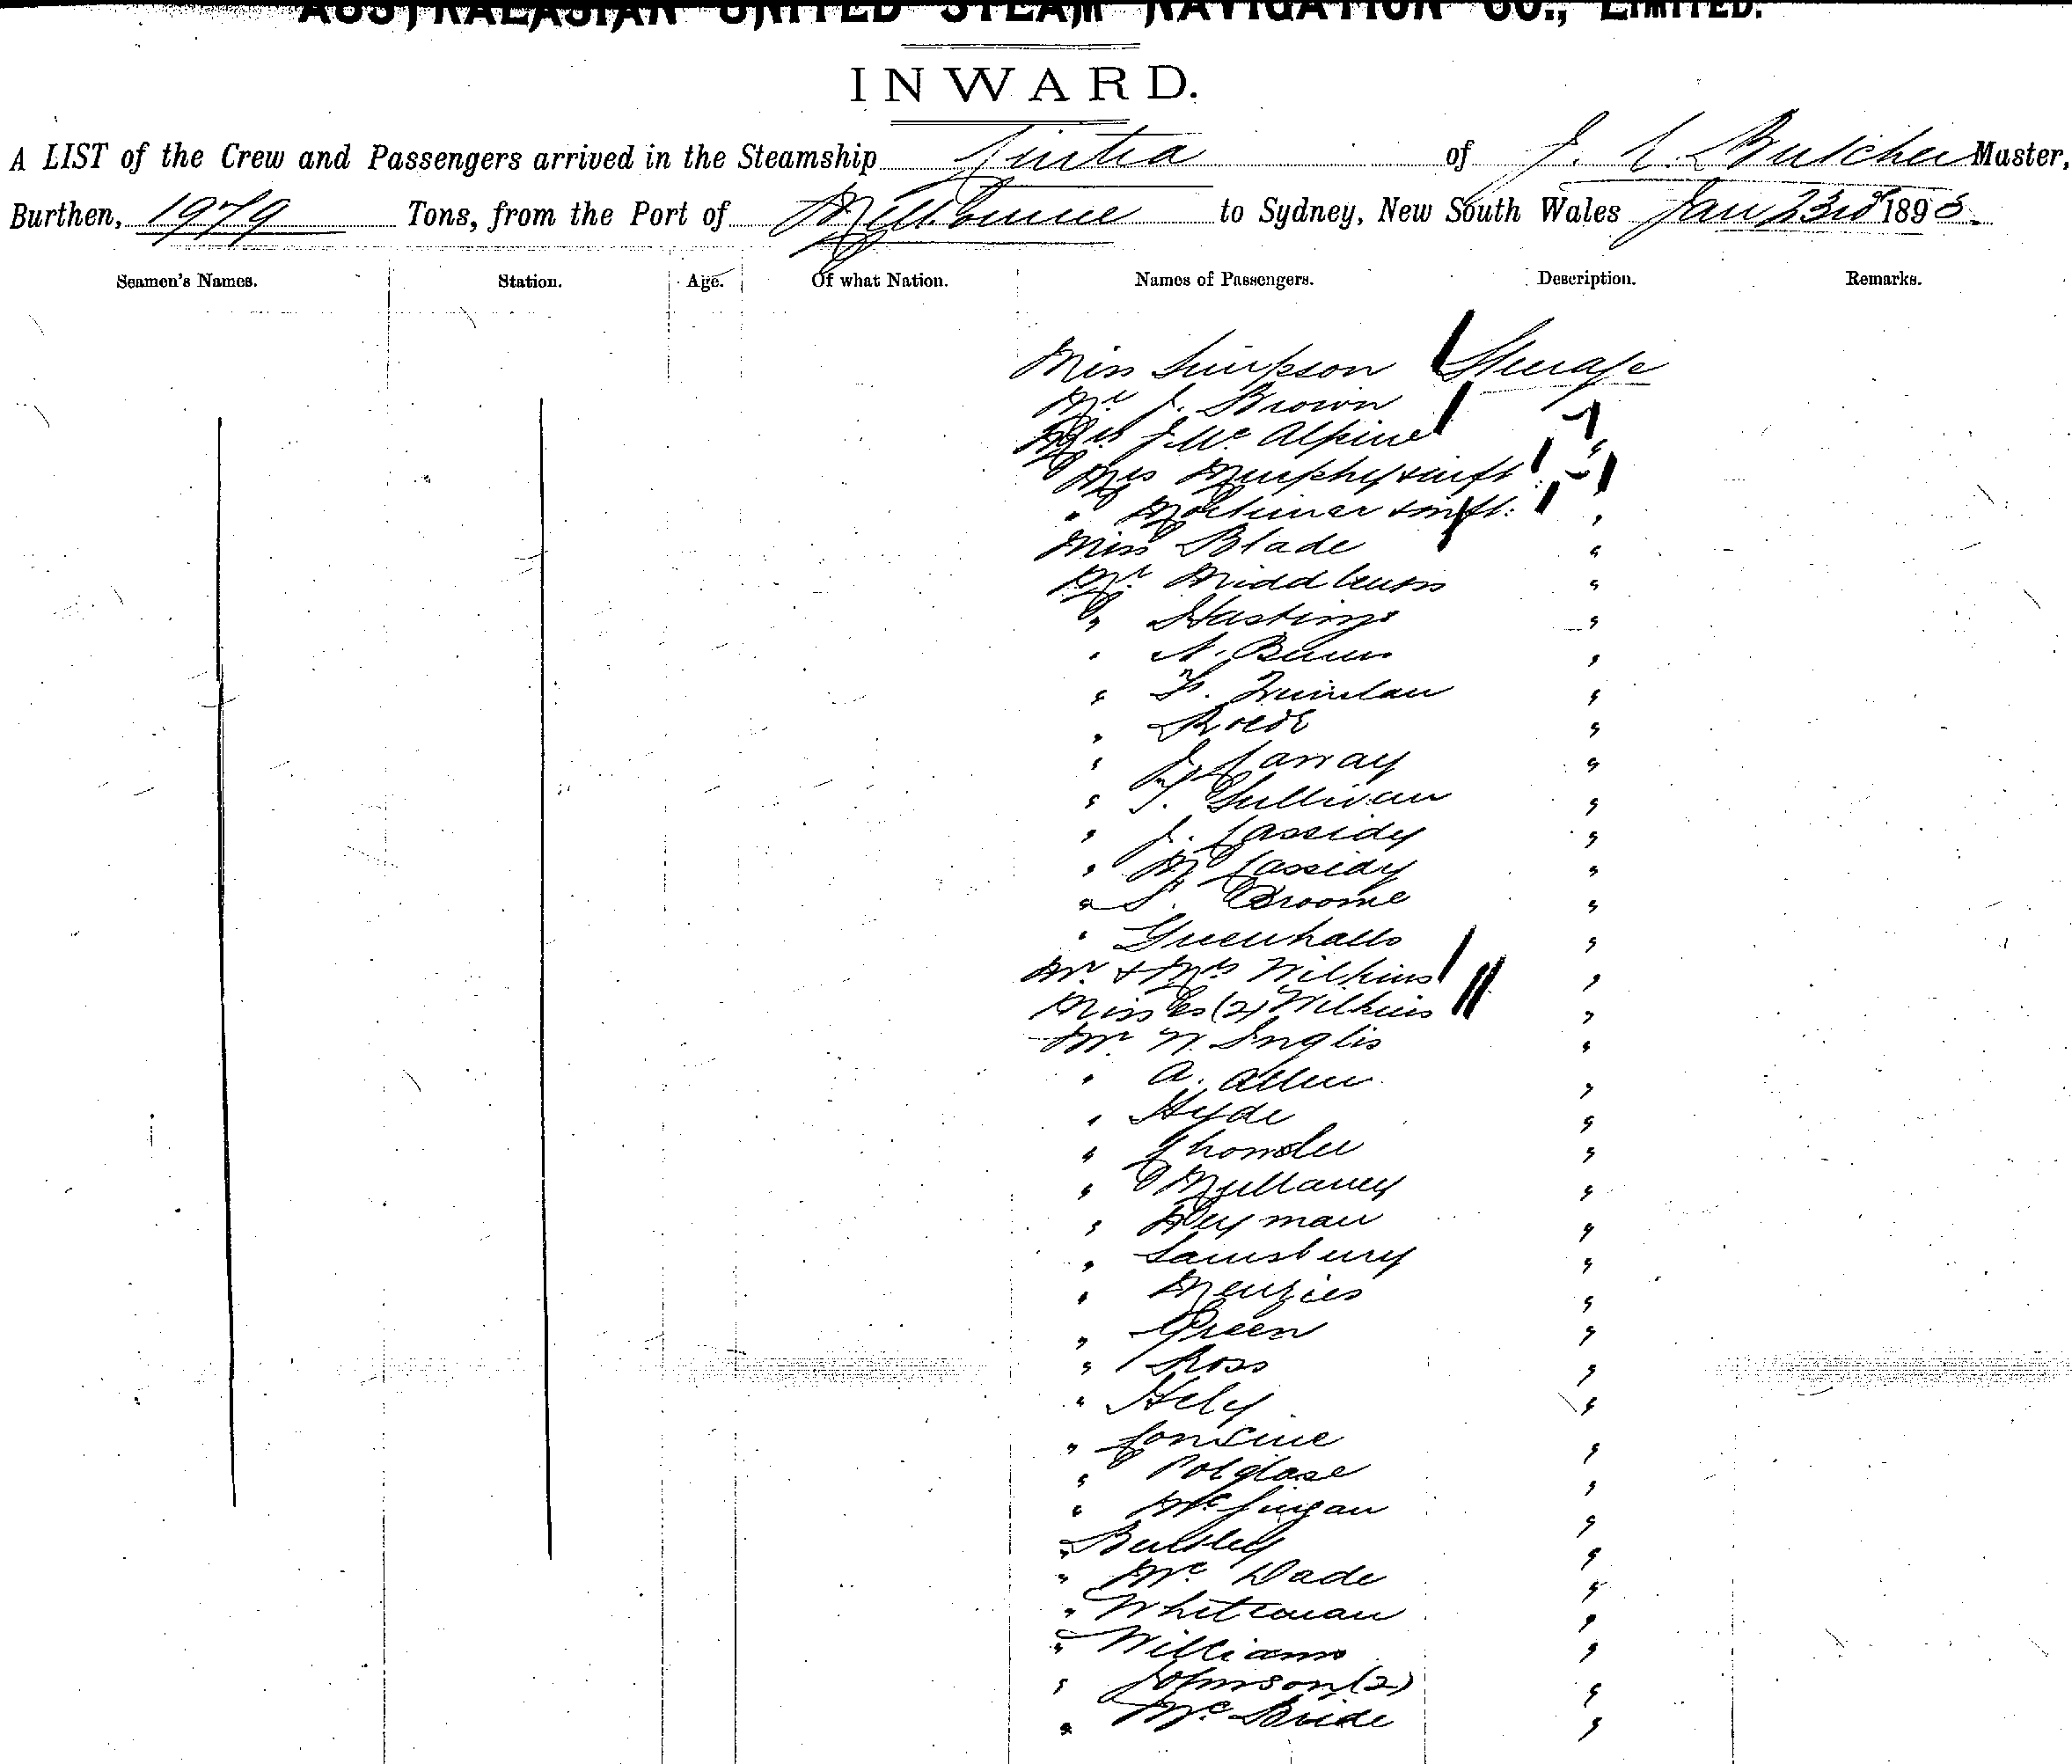 AUSTRALASIAN UNITED STEAM NAVIGATION CO., LIMITED.
INWARD.
A LIST of the Crew and Passengers arrived in the Steamship Tintra of J. C. Butcher Master,
Burthen, 1979 Tons, from the Port of Melbourne to Sydney, New South Wales Jan 23rd 1893.
Seamen's Names. Station. Age. Of what Nation. Names of Passengers. Description. Remarks.
Miss Simpson Steerage
Mr J. Brown "
J. McAlpine "
Mrs Murphy & inft "
" Mortimer & inft. "
Miss Blade "
Mr "
" Hastings "
" "
" Quinlan "
" "
" J. "
" T. Sullivan "
" J. Cassidy "
" M Cassidy "
" S. Broome "
" Greenhalls "
Mr & Mrs Wilkins "
Misses (2) Wilkins "
Mr W. Inglis "
" A. Allen "
" Hyde "
" "
" Mullaney "
" Heyman "
" Sainsbury "
" Menzies "
" Green "
" Ross "
" Hely "
" Consine "
" Polglase "
" "
" "
" McDade "
" Whiteman "
" Williams "
" Johnson (2) "
" McBride "